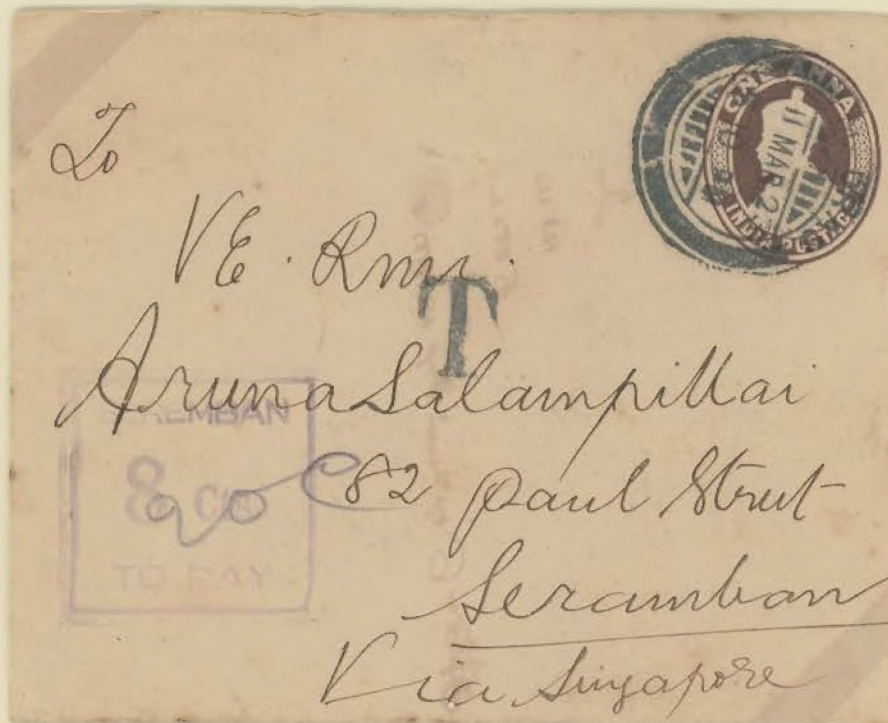 To
ONE ANNA
11 MAR 2
INDIA POSTAGE
VE. Rmr.
T
Arunasalampillai
SEREMBAN
8 C
20 C
82 Paul Street
TO PAY
Seramban
Via Singapore